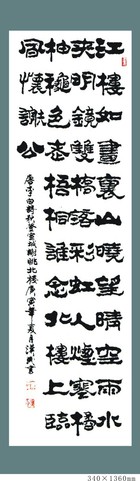 江樓如畫裏山曉望晴空兩水
夾明鏡雙橋落彩虹人煙寒橘
柚穐色老梧桐誰念北樓上臨
風懷謝公
唐李白詩秋登宣城謝朓北楼庚寅年夏月漢書
340×1360mm